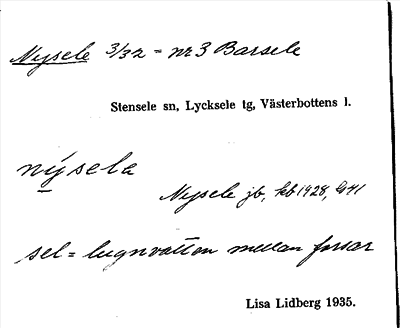 Nysele 3/32 = nr 3 Barsele
Stensele sn, Lycksele tg, Västerbottens l.
nýsela
Nysele jb, kb 1928, GA41
sel = lugnvatten mellan forsar
Lisa Lidberg 1935.